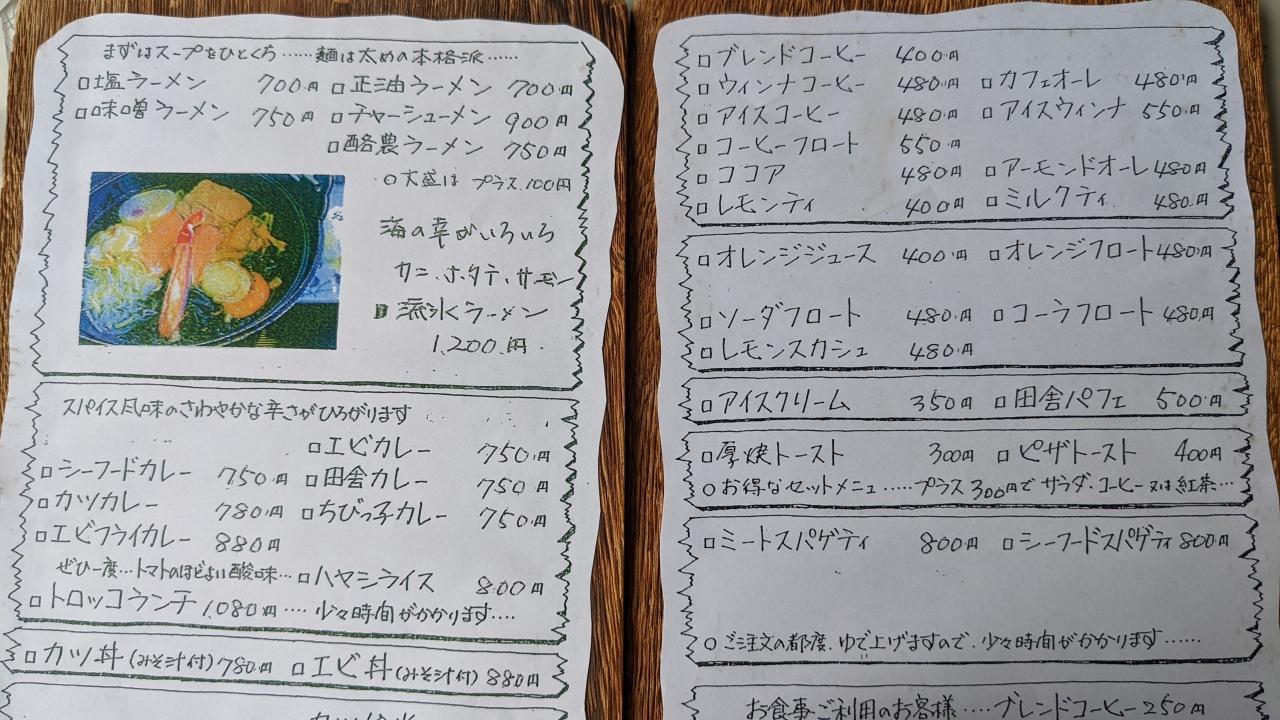 まずはスープをひとくち……麺は太めの本格派……
□塩ラーメン 700円 □正油ラーメン 700円
□味噌ラーメン 750円 □チャーシューメン 900円
□酪農ラーメン 750円
○大盛は プラス100円
海の幸がいろいろ
カニ、ホタテ、サーモン
流氷ラーメン
1,200円
スパイス風味のさわやかな辛さがひろがります
□エビカレー 750円
□シーフードカレー 750円 □田舎カレー 750円
□カツカレー 780円 □ちびっ子カレー 750円
□エビフライカレー 880円
ぜひ一度…トマトのほどよい酸味… □ハヤシライス 800円
□トロッコランチ 1,080円 …. 少々時間がかかります….
□カツ丼(みそ汁付)780円 □エビ丼(みそ汁付)880円
□ブレンドコーヒー 400円
□ウィンナコーヒー 480円 □カフェオーレ 480円
□アイスコーヒー 480円 □アイスウィンナ 550円
□コーヒーフロート 550円
□ココア 480円 □アーモンドオーレ 480円
□レモンティ 400円 □ミルクティ 480円
□オレンジジュース 400円 □オレンジフロート 480円
□ソーダフロート 480円 □コーラフロート 480円
□レモンスカシュ 480円
□アイスクリーム 350円 □田舎パフェ 500円
□厚焼トースト 300円 □ピザトースト 400円
○お得なセットメニュ……プラス300円でサラダ、コーヒー又は紅茶…
□ミートスパゲティ 800円 □シーフードスパゲティ 800円
○ご注文の都度、ゆで上げますので、少々時間がかかります……
お食事ご利用のお客様……ブレンドコーヒー250円